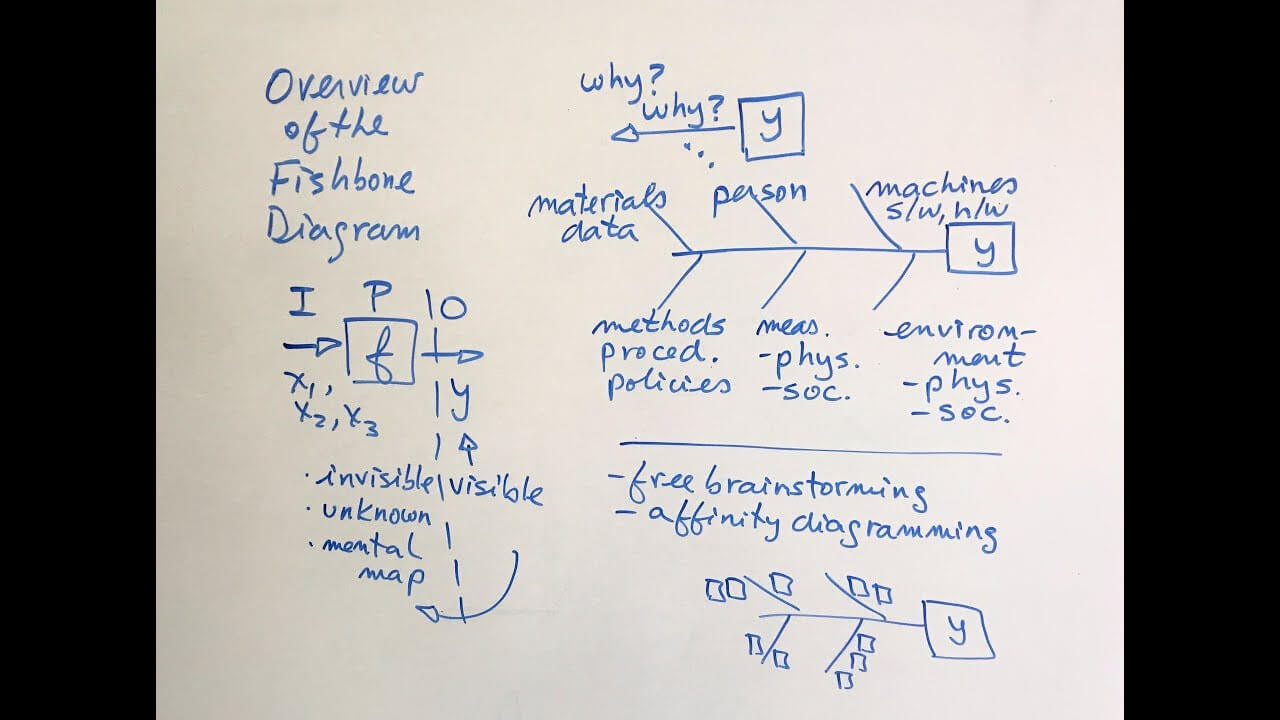 Overview
of the
Fishbone
Diagram
I P O
f
x1,
x2, x3
y
· invisible visible
· unknown
· mental
map
why?
why?
...
y
materials
data
person
machines
s/w, h/w
y
methods
proced.
policies
meas.
- phys.
- soc.
environ-
ment
- phys.
- soc.
- free brainstorming
- affinity diagramming
y